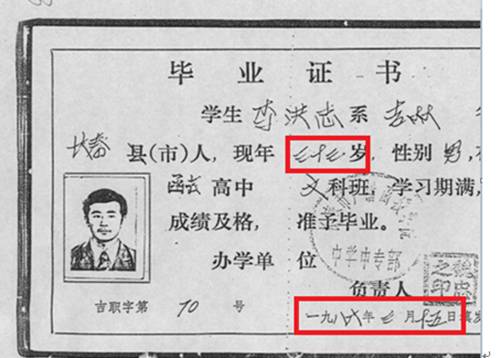 毕业证书
学生 李洪志 系 吉林
长春 县(市)人，现年 三十三 岁，性别 男，
函云 高中 文 科班，学习期满，
成绩及格，准予毕业。
中学中专部
办学单位
之印
负责人
吉职字第 70 号
一九八六年 三 月 十五 日填发